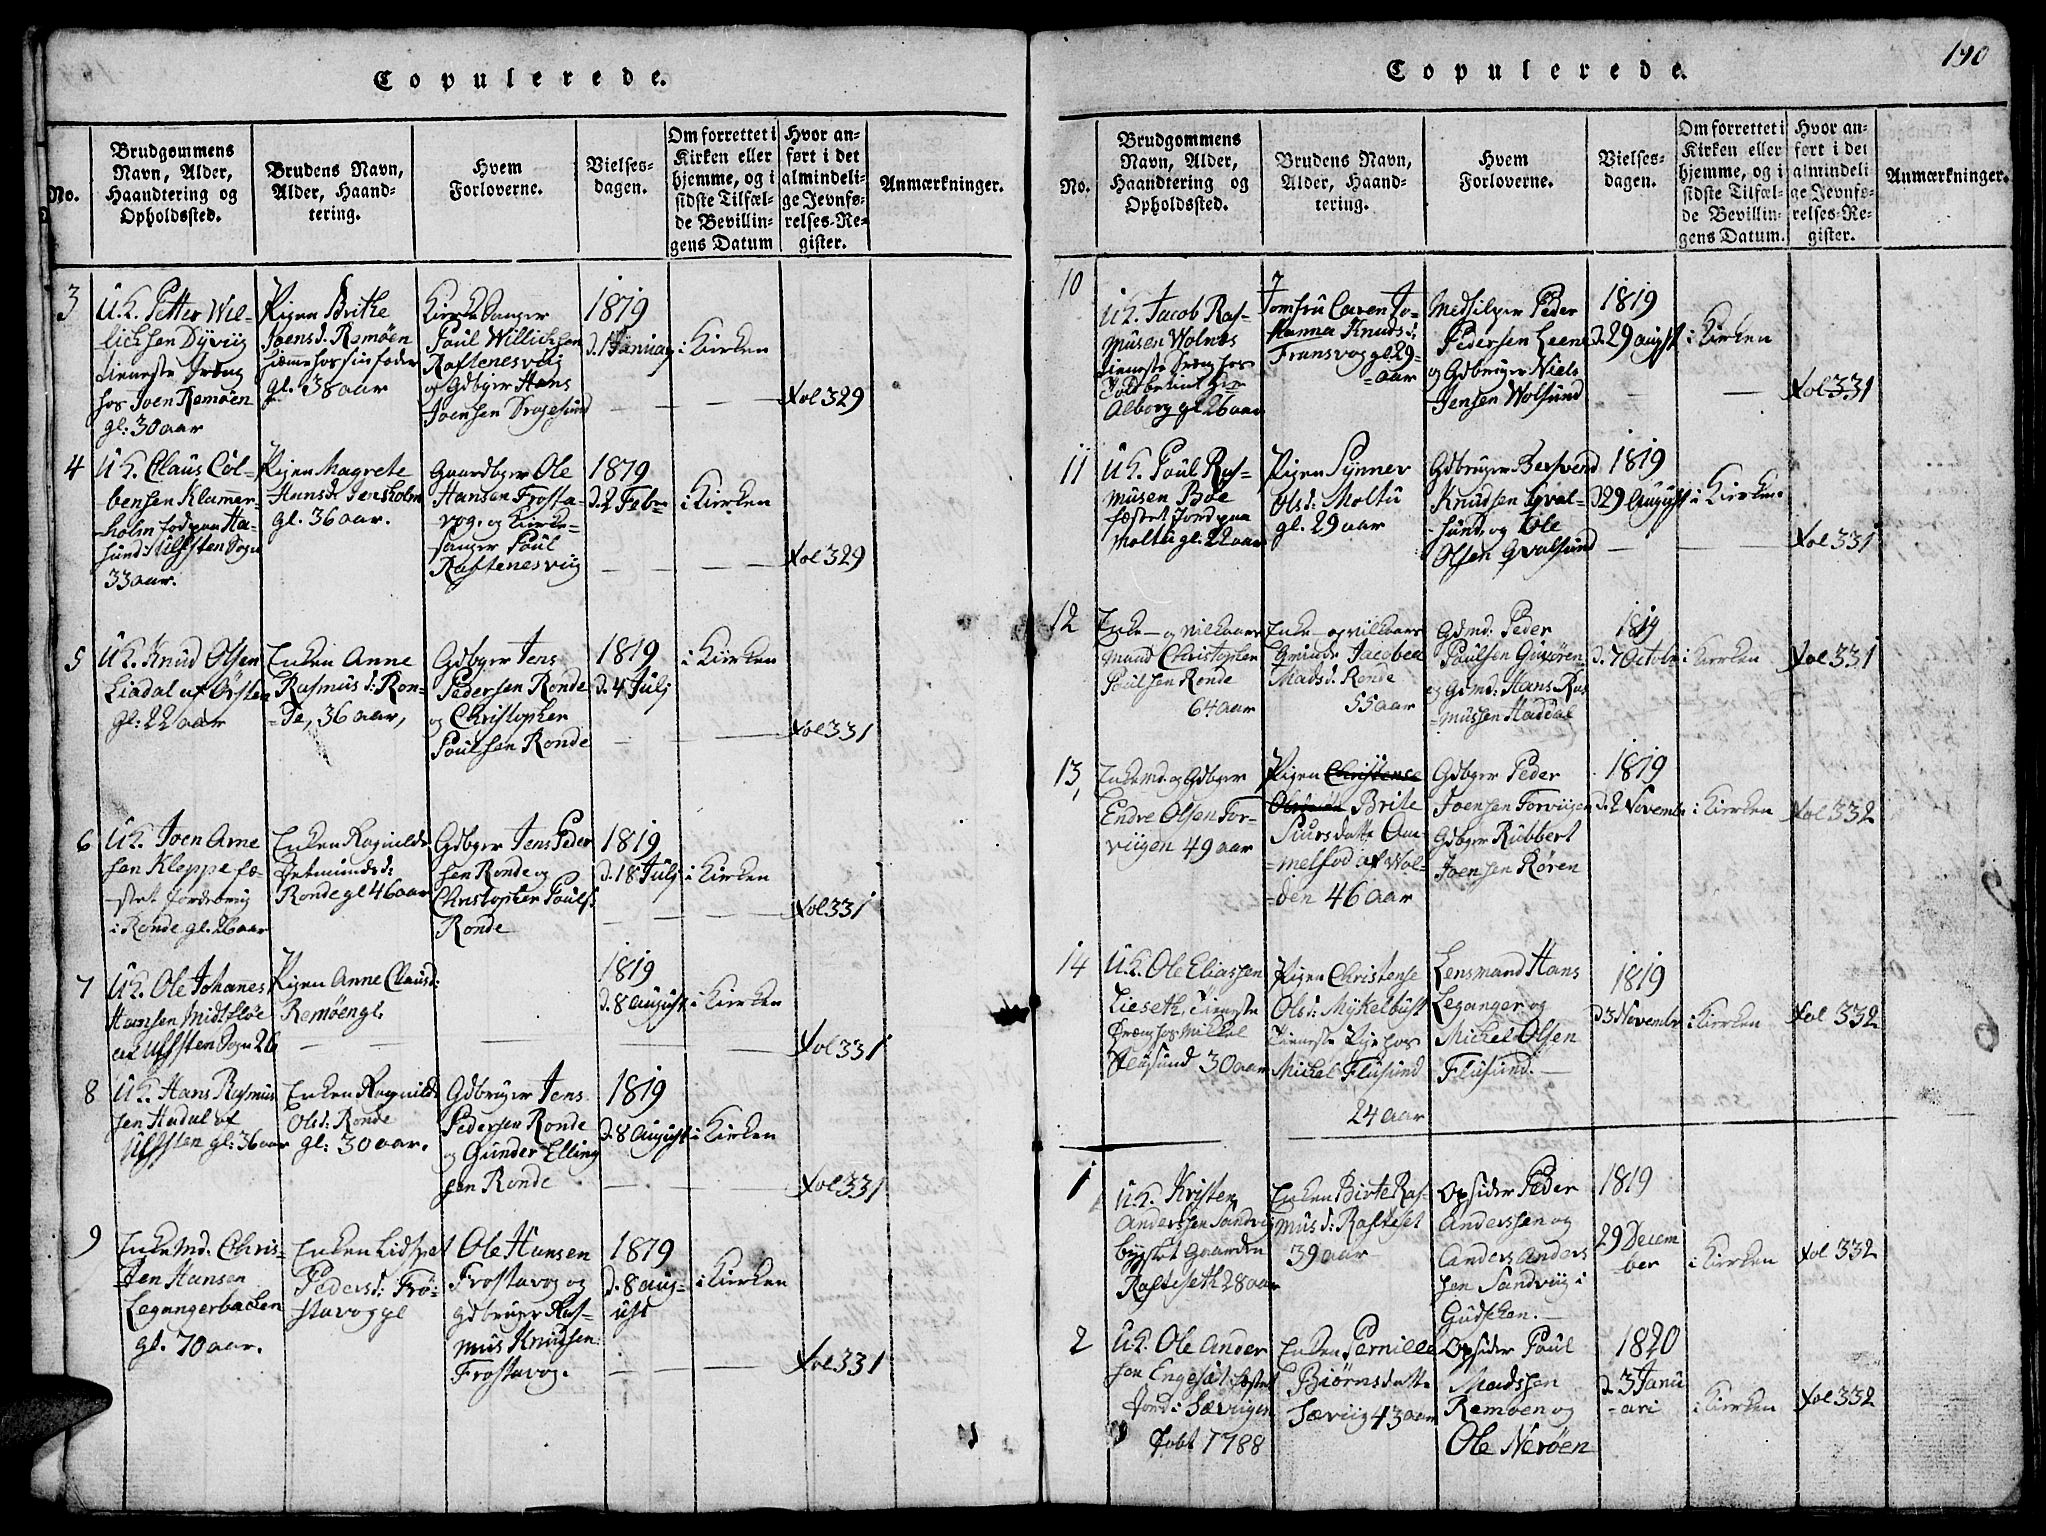 Copulerede.
No.
Brudgommens
Navn, Alder,
Haandtering og
Opholdssted.
Brudens Navn,
Alder, Haand-
tering.
Hvem
Forloverne.
Vielses-
dagen.
Om forrettet i
Kirken eller
hjemme, og i
sidste Tilfæl-
de Bevillin-
gens Datum
Hvor an-
ført i det
almindeli-
ge Jevnfø-
relses-Re-
gister.
Anmærkninger.
3
U.K. Petter Wil-
lichsen Dyviig
tieneste Dreng
hos Joen Remøen
gl: 30 aar
Pigen Brithe
Joensd. Remøen
hiemme hos sin fader
gl. 38 aar
Kirkesanger
Poul Willichsen
Raftenesviig
og Gdbger Hans
Joensen Dragesund
1819
d. 1 Januar
i Kirken
Fol 329
4
U.K. Claus Col-
bensen Klammer-
holm fød paa Ha-
sund: Ulfsten Sogn
33 aar.
Pigen Magrete
Hansd. Jensholm
gl. 36 aar.
Gaardbger Ole
Hansen Frosta-
vog, og Kirke-
sanger Poul
Raftenesviig
1819
d. 2 Febr
i Kirken
Fol 329
5
U.K. Knud Olsen
Liadal af Ørsten
gl: 22 aar
Enken Anne
Rasmusd: Ron-
de, 36 aar,
Gdbger Jens
Pedersen Ronde
og Christopher
Poulsen Ronde
1819
d. 4 Julj
i Kirken
Fol 331
6
U.K. Joen Arne
sen Kleppe fæ-
stet Jordebrug
i Ronde gl. 26 aar
Enken Ragnilde
Ronde gl 46 aar
Gdbger Jens Peder
sen Ronde og
Christopher Pouls:
Ronde
1819
d. 18 Julj
i Kirken
Fol 331
7
U.K. Ole Johannes
Hansen Midtfløe
af Ulfsten Sogn 26
Pigen Anne Clausd:
Remøen gl.
1819
d. 8 august
i Kirken
Fol 331
8
U.K. Hans Rasmus
sen Hadal af
Ulfsten gl: 36 aar
Enken Ragnild
Olsd: Ronde
gl: 30 aar.
Gdbruger Jens
Pedersen Ronde
og Gunder Elling
sen Ronde
1819
d. 8 August
i Kirken
Fol 331
9
Enkemd. Chris-
ten Hansen
Legangerbacken
gl. 70 aar.
Enken Lidspet
Pedersd: Frø-
stavog gl
Ole Hansen
Frostavog og
gdbruger Ras-
mus Knudsen
Frostavog.
1819
d. 8 aug-
ust
i Kirken
Fol 331
Copulerede.
190
No.
Brudgommens
Navn, Alder,
Haandtering og
Opholdssted.
Brudens Navn,
Alder, Haand-
tering.
Hvem
Forloverne.
Vielses-
dagen.
Om forrettet i
Kirken eller
hjemme, og i
sidste Tilfæl-
de Bevillin-
gens Datum.
Hvor an-
ført i det
almindeli-
ge Jevnfø-
relses-Re-
gister.
Anmærkninger.
10
U.K. Jacob Ras-
musen Wolnes
tieneste Dreng hos
Toldbetient
Alborg gl 26 aar
Jomfru Caren Jo-
hanna Knudsd:
Fransvog gl 29-
aar
Medhilper Peder
Pedersen Leene
og Gdbruger Niels
Jensen Wolsund
1819
d. 29 august
i Kirken
Fol 331
11
U.K. Poul Ras-
musen Bøe
fæstet Jord paa
Moltu gl. 22 aar
Pigen Synnev
Olsd: Moltu
gl. 29 aar
Gdbruger Bersvend
Knudsen Qval-
sund, og Ole
Olsen Qvalsund
1819
d 29 August
i Kirken
Fol 331
12
Enke- og Vilkaars
mand Christopher
Poulsen Ronde
64 aar
Enke- og vilkaars
Jacobea
Madsd: Ronde
55 aar
Gdmd: Peder
Poulsen Gurøren
og Gdmd: Hans Ras
mussen Haddal
1819
d. 7 Octobr
i Kirken
Fol 331
13,
Enkemd. og Gdbger
Endre Olsen Tor-
viigen 49 aar
Pigen Christense
Brite
Siursdatte Aa-
melfod af Wol-
den 46 aar
Gdbger Peder
Joensen Torviigen
Gdbger Rubbert
Joensen Røren
1819
d. 2 Novembr
i Kirken
Fol 332
14
U.K. Ole Eliassen
Lieseth, Tieneste
Dreng hos Mikkel
Flusund 30 aar
Pigen Christense
Olsd: Mykelbust
Tieneste Pige hos
Mickel Flusund
24 aar
Lensmand Hans
Leganger og
Michel Olsen
Flusund.
1819
d 3 Novembr
i Kirken
Fol 332
1
U.K. Kristen
Anderssen Sandviig
bygslet Gaarden
Rafteseth 28 aar
Enken Birte Ras-
musd: Rafteset
39 aar
Opsider Peder
Anderssen og
Anders Anders
sen Sandviig i
Gudschen.
1819
29 Decem
ber
i Kirken
Fol 332
2
U.K. Ole Ander
sen Engesæt fæstet
Jord i Sæviigen
Født 1788
Enken Pernille
Biørnsdatte
Sæviig 43 aar
Opsider Poul
Madssen
Remøen og
Ole Nerøen
1820
d. 3 Janu
ari
i Kirken
Fol 332